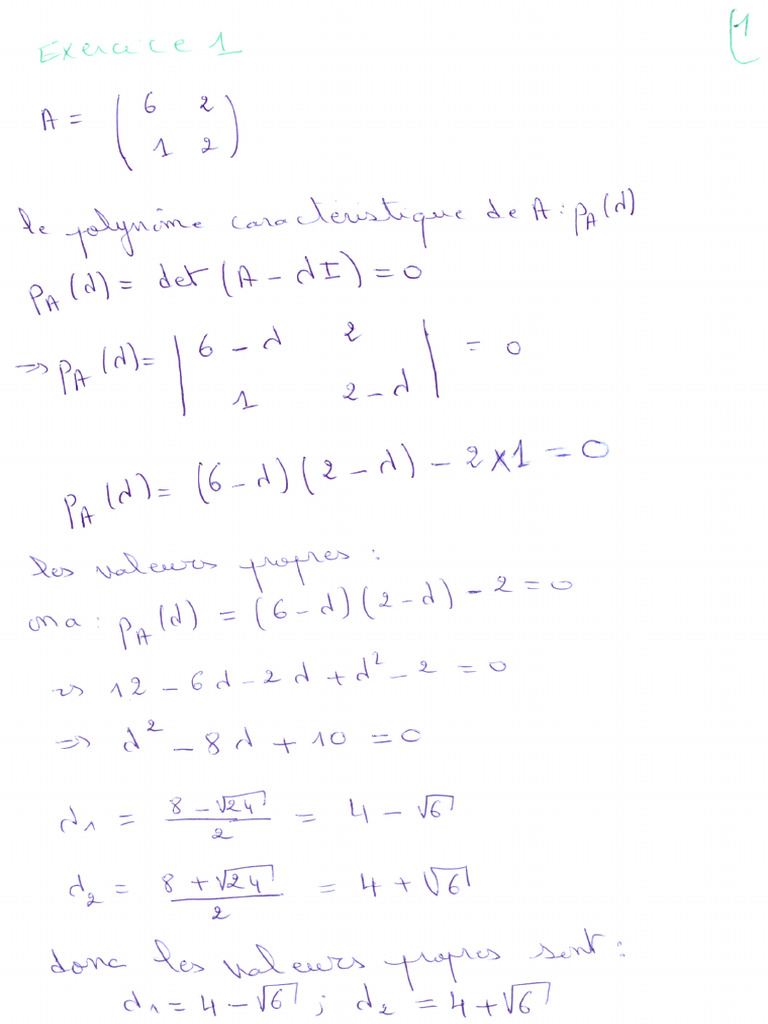 Exercice 1
(1
A = ( 6 2
1 2 )
le polynôme caractéristique de A : P_A(λ)
P_A(λ) = det (A - λI) = 0
=> P_A(λ) = | 6 - λ 2 | = 0
1 2 - λ
P_A(λ) = (6 - λ)(2 - λ) - 2×1 = 0
les valeurs propres :
on a : P_A(λ) = (6 - λ)(2 - λ) - 2 = 0
=> 12 - 6λ - 2λ + λ² - 2 = 0
=> λ² - 8λ + 10 = 0
λ₁ = (8 - √24)/2 = 4 - √6
λ₂ = (8 + √24)/2 = 4 + √6
donc les valeurs propres sont :
λ₁ = 4 - √6 ; λ₂ = 4 + √6